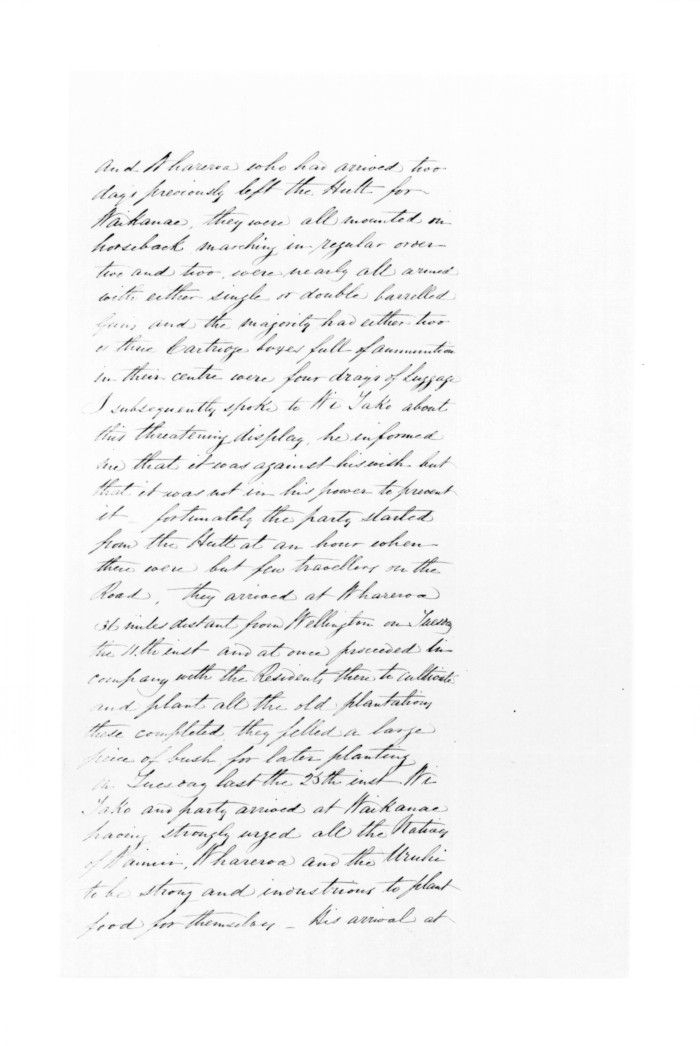 and Whareroa who had arrived two
days previously left the Hutt for
Waikanae, they were all mounted on
horseback marching in regular order
two and two, were nearly all armed
with either single or double barrelled
Guns and the majority had either two
or three Cartridge boxes full of ammunition
in their centre were four drays of luggage
I subsequently spoke to Wi Tako about
this threatening display, he informed
me that it was against his wish but
that it was not in his power to prevent
it – fortunately the party started
from the Hutt at an hour when
there were but few travellers on the
Road, they arrived at Whareroa
miles distant from Wellington on Tuesday
the 11th inst and at once proceeded in
company with the Residents there to cultivate
and plant all the old plantations
these completed they felled a large
piece of bush for later planting
on Tuesday last the 25th inst Wi
Tako and party arrived at Waikanae
having strongly urged all the Natives
of Wainui, Whareroa and the Uruhi
to be strong and industrious to plant
food for themselves – His arrival at